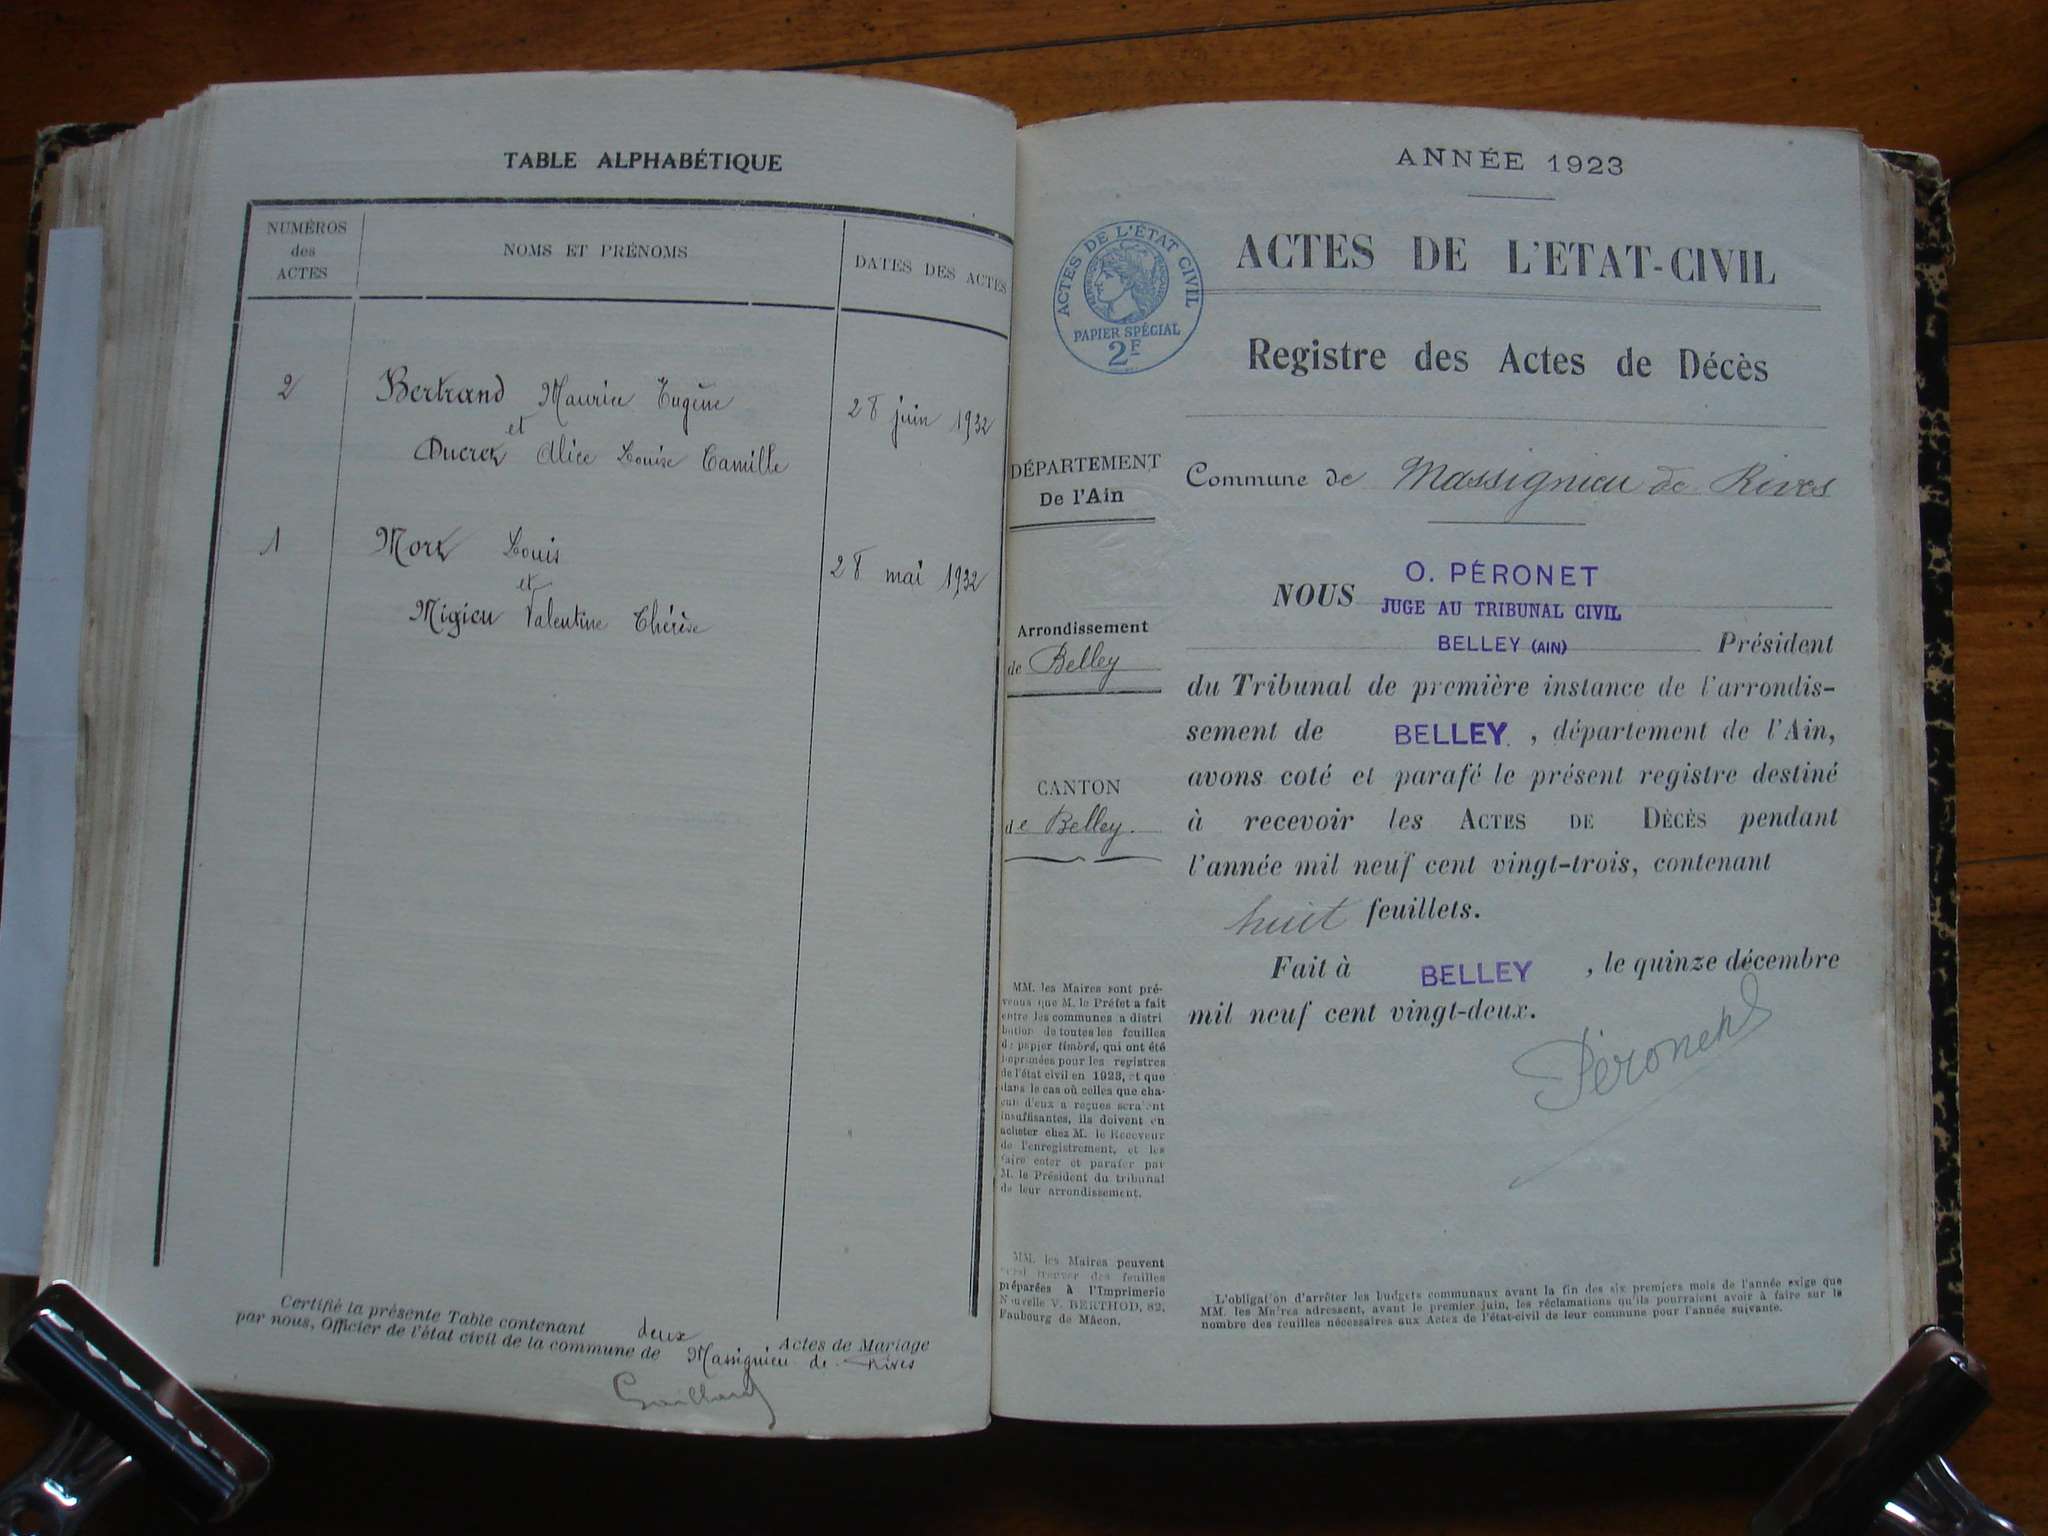 TABLE ALPHABÉTIQUE
NUMÉROS
des
ACTES
NOMS ET PRÉNOMS
DATES DES ACTES
2
Bertrand Maurice Eugène
et
Ducrez Alice Louise Camille
28 juin 1932
1
Morz Louis
et
Migieu Valentine Thérèse
28 mai 1932
Certifié la présente Table contenant deux Actes de Mariage
par nous, Officier de l'état civil de la commune de Massignieu de Rives
Gaillard
ANNÉE 1923
ACTES DE L'ÉTAT CIVIL
PAPIER SPÉCIAL
2F
ACTES DE L'ETAT-CIVIL
Registre des Actes de Décès
DÉPARTEMENT
De l'Ain
Commune de Massignieu de Rives
Arrondissement
de Belley
CANTON
de Belley.
NOUS O. PÉRONET
JUGE AU TRIBUNAL CIVIL
BELLEY (AIN) Président
du Tribunal de première instance de l'arrondis-
sement de BELLEY, département de l'Ain,
avons coté et parafé le présent registre destiné
à recevoir les ACTES DE DÉCÈS pendant
l'année mil neuf cent vingt-trois, contenant
huit feuillets.
Fait à BELLEY, le quinze décembre
mil neuf cent vingt-deux.
Péronet
MM. les Maires sont pré-
venus que M. le Préfet a fait
entre les communes a distri
bution de toutes les feuilles
de papier timbré, qui ont été
imprimées pour les registres
de l'état civil en 1923, et que
dans le cas où celles que cha-
cun d'eux a reçues seraient
insuffisantes, ils doivent en
acheter chez M. le Receveur
de l'enregistrement, et les
faire coter et parafer par
M. le Président du tribunal
de leur arrondissement.
MM. les Maires peuvent
trouver des feuilles
préparées à l'Imprimerie
Nouvelle V. BERTHOD, 82,
Faubourg de Mâcon.
L'obligation d'arrêter les budgets communaux avant la fin des six premiers mois de l'année exige que
MM. les Maires adressent, avant le premier juin, les réclamations qu'ils pourraient avoir à faire sur le
nombre des feuilles nécessaires aux Actes de l'état-civil de leur commune pour l'année suivante.